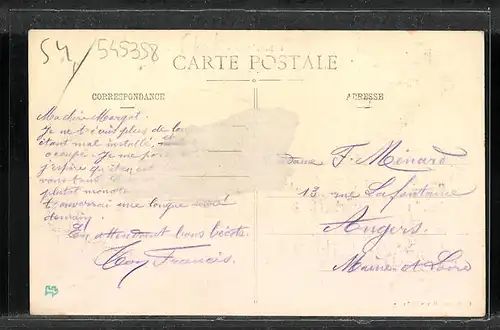 54 545358
CARTE POSTALE
CORRESPONDANCE
ADRESSE
Ma chère Margot.
Je ne t'écris plus de
étant mal installé, et
occupé. Je me por
j'espère qu'il en est
vous tous.
plutôt monoto
t'enverrai une longue
demain.
En attendant bons bécots.
Francis.
dame F. Ménard
13 rue Lafontaine
Angers.
Maine et Loire